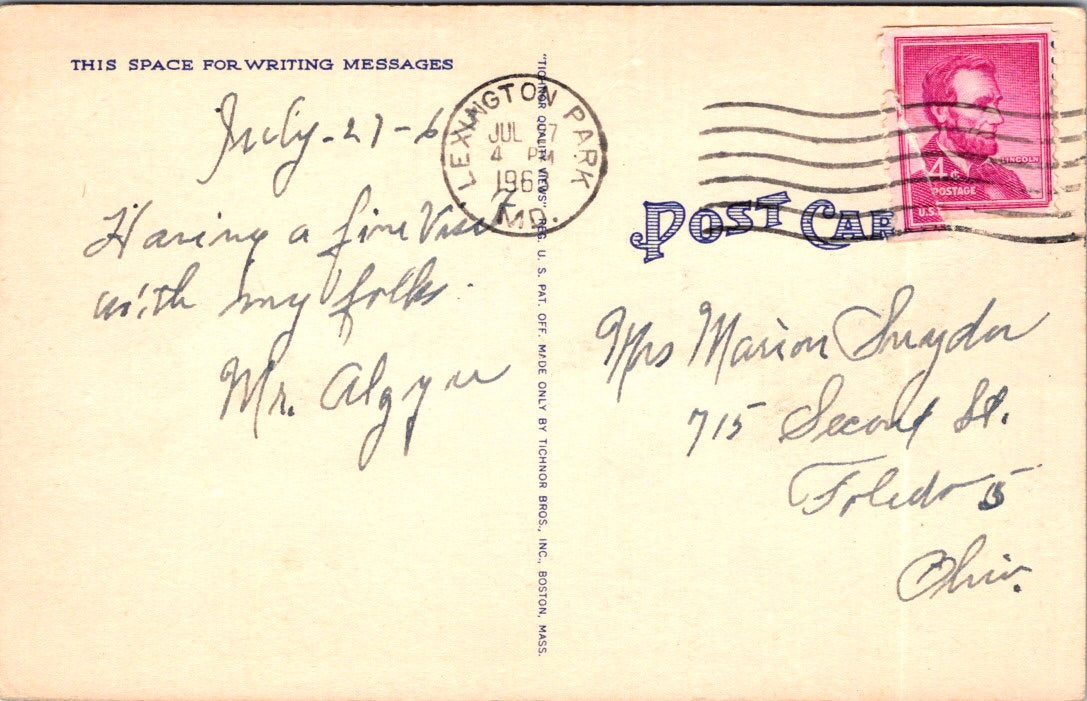 THIS SPACE FOR WRITING MESSAGES
July-27-6
Having a fine Visit
with my folks.
Mr.
LEXINGTON PARK
JUL 7
4 PM
196
MD.
"TICHNOR QUALITY VIEWS" REG. U. S. PAT. OFF. MADE ONLY BY TICHNOR BROS., INC., BOSTON, MASS.
LINCOLN
4¢
POSTAGE
U.S.
POST CAR
Mrs Marion Snyder
715 Second St.
Toledo 5
Ohio.